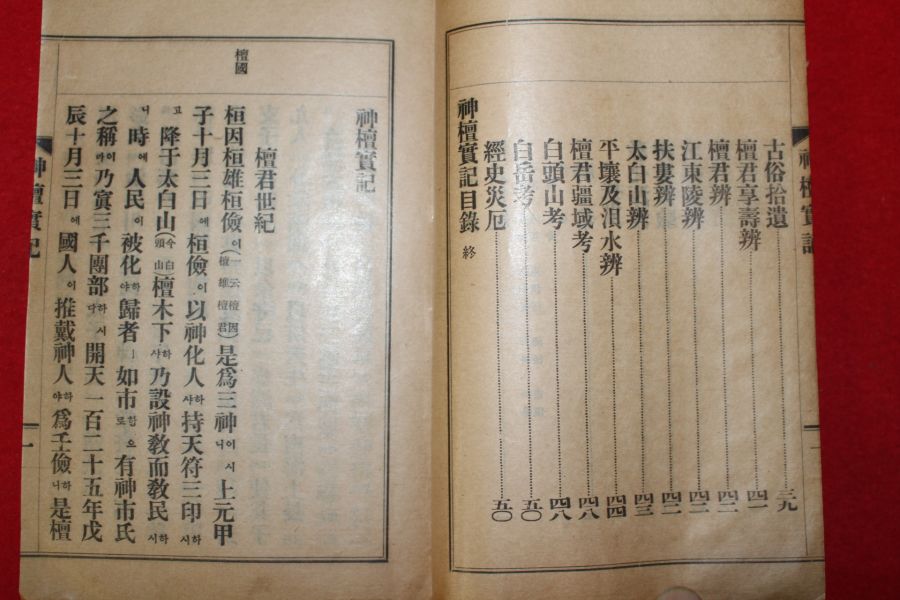 神檀實記
古俗拾遺 三九
檀君享壽辨 四一
檀君辨 四二
江東陵辨 四二
扶婁辨 四二
太白山辨 四三
平壤及浿水辨 四四
檀君疆域考 四八
白頭山考 四八
白岳考 五〇
經史災厄 五〇
神檀實記目錄 終
檀國
神檀實記
檀君世紀
桓因桓雄桓儉이(一云檀因檀雄檀君)是爲三神이시니上元甲
子十月三日에桓儉이以神化人하샤持天符三印하시
고降于太白山(今白頭山)檀木下하샤乃設神敎而敎民하시
니時에人民이被化하야歸者ㅣ如市함으로有神市氏
之稱이라乃寘三千團部하시다開天一百二十五年戊
辰十月三日에國人이推戴神人하야爲壬儉하니是檀
神檀實記
一